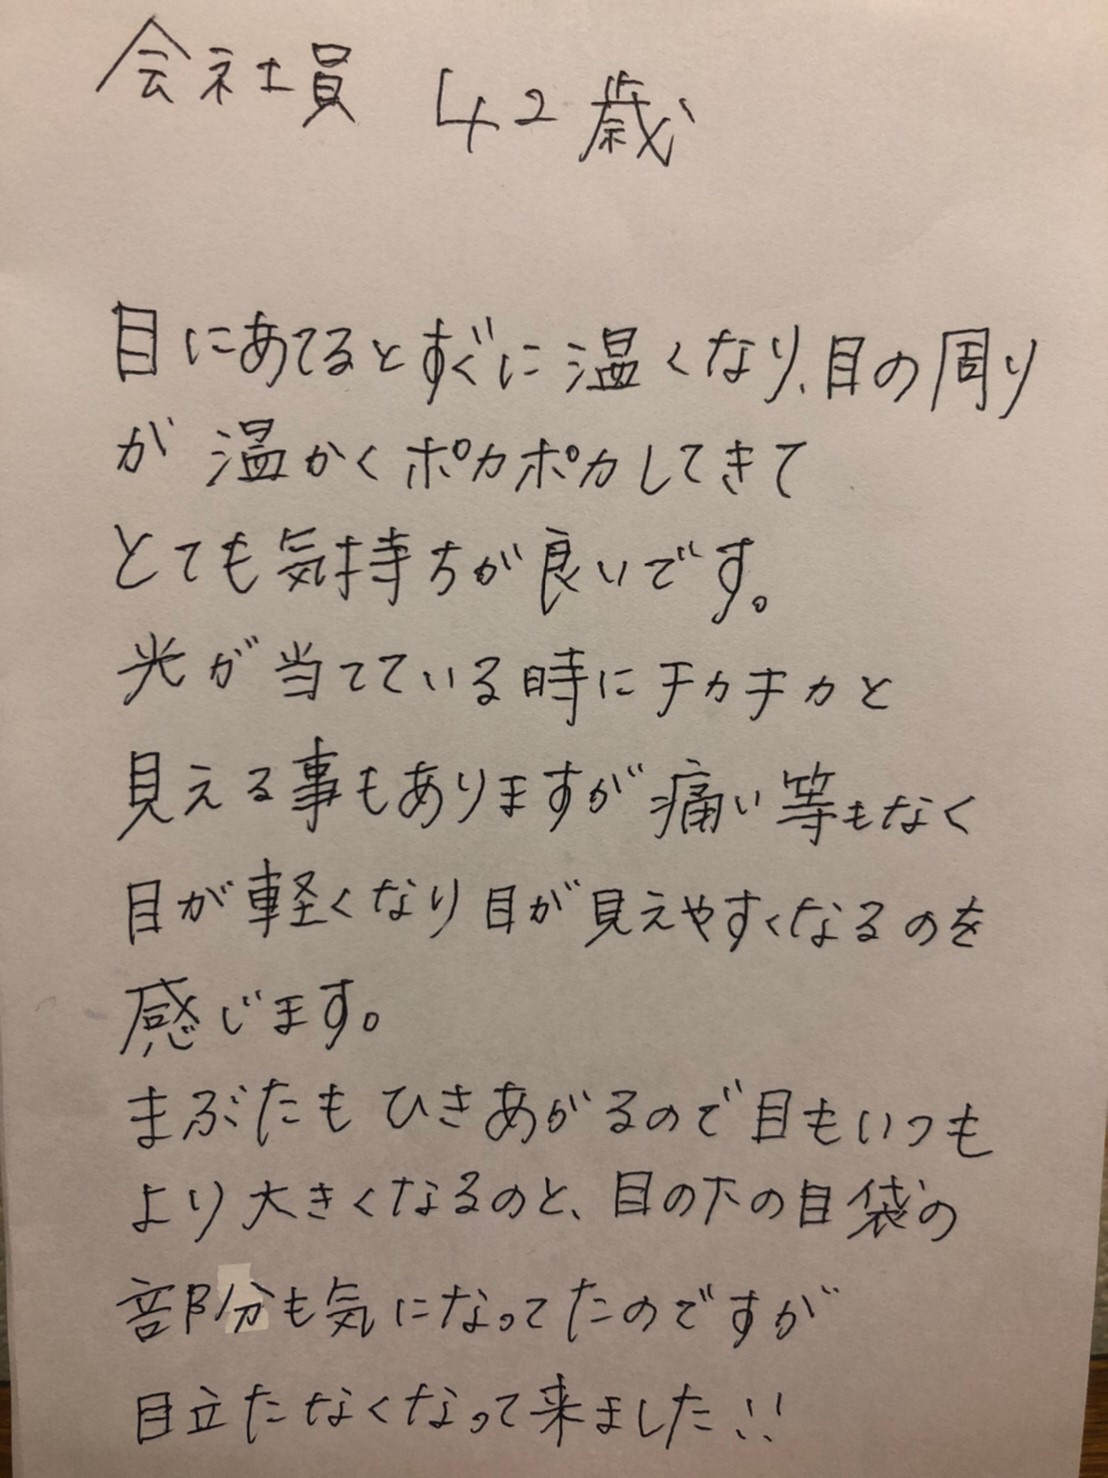 会社員 42歳
目にあてるとすぐに温くなり、目の周り
が温かくポカポカしてきて
とても気持ちが良いです。
光が当てている時にチカチカと
見える事もありますが痛い等もなく
目が軽くなり目が見えやすくなるのを
感じます。
まぶたもひきあがるので目もいつも
より大きくなるのと、目の下の目袋の
部分も気になってたのですが
目立たなくなって来ました!!